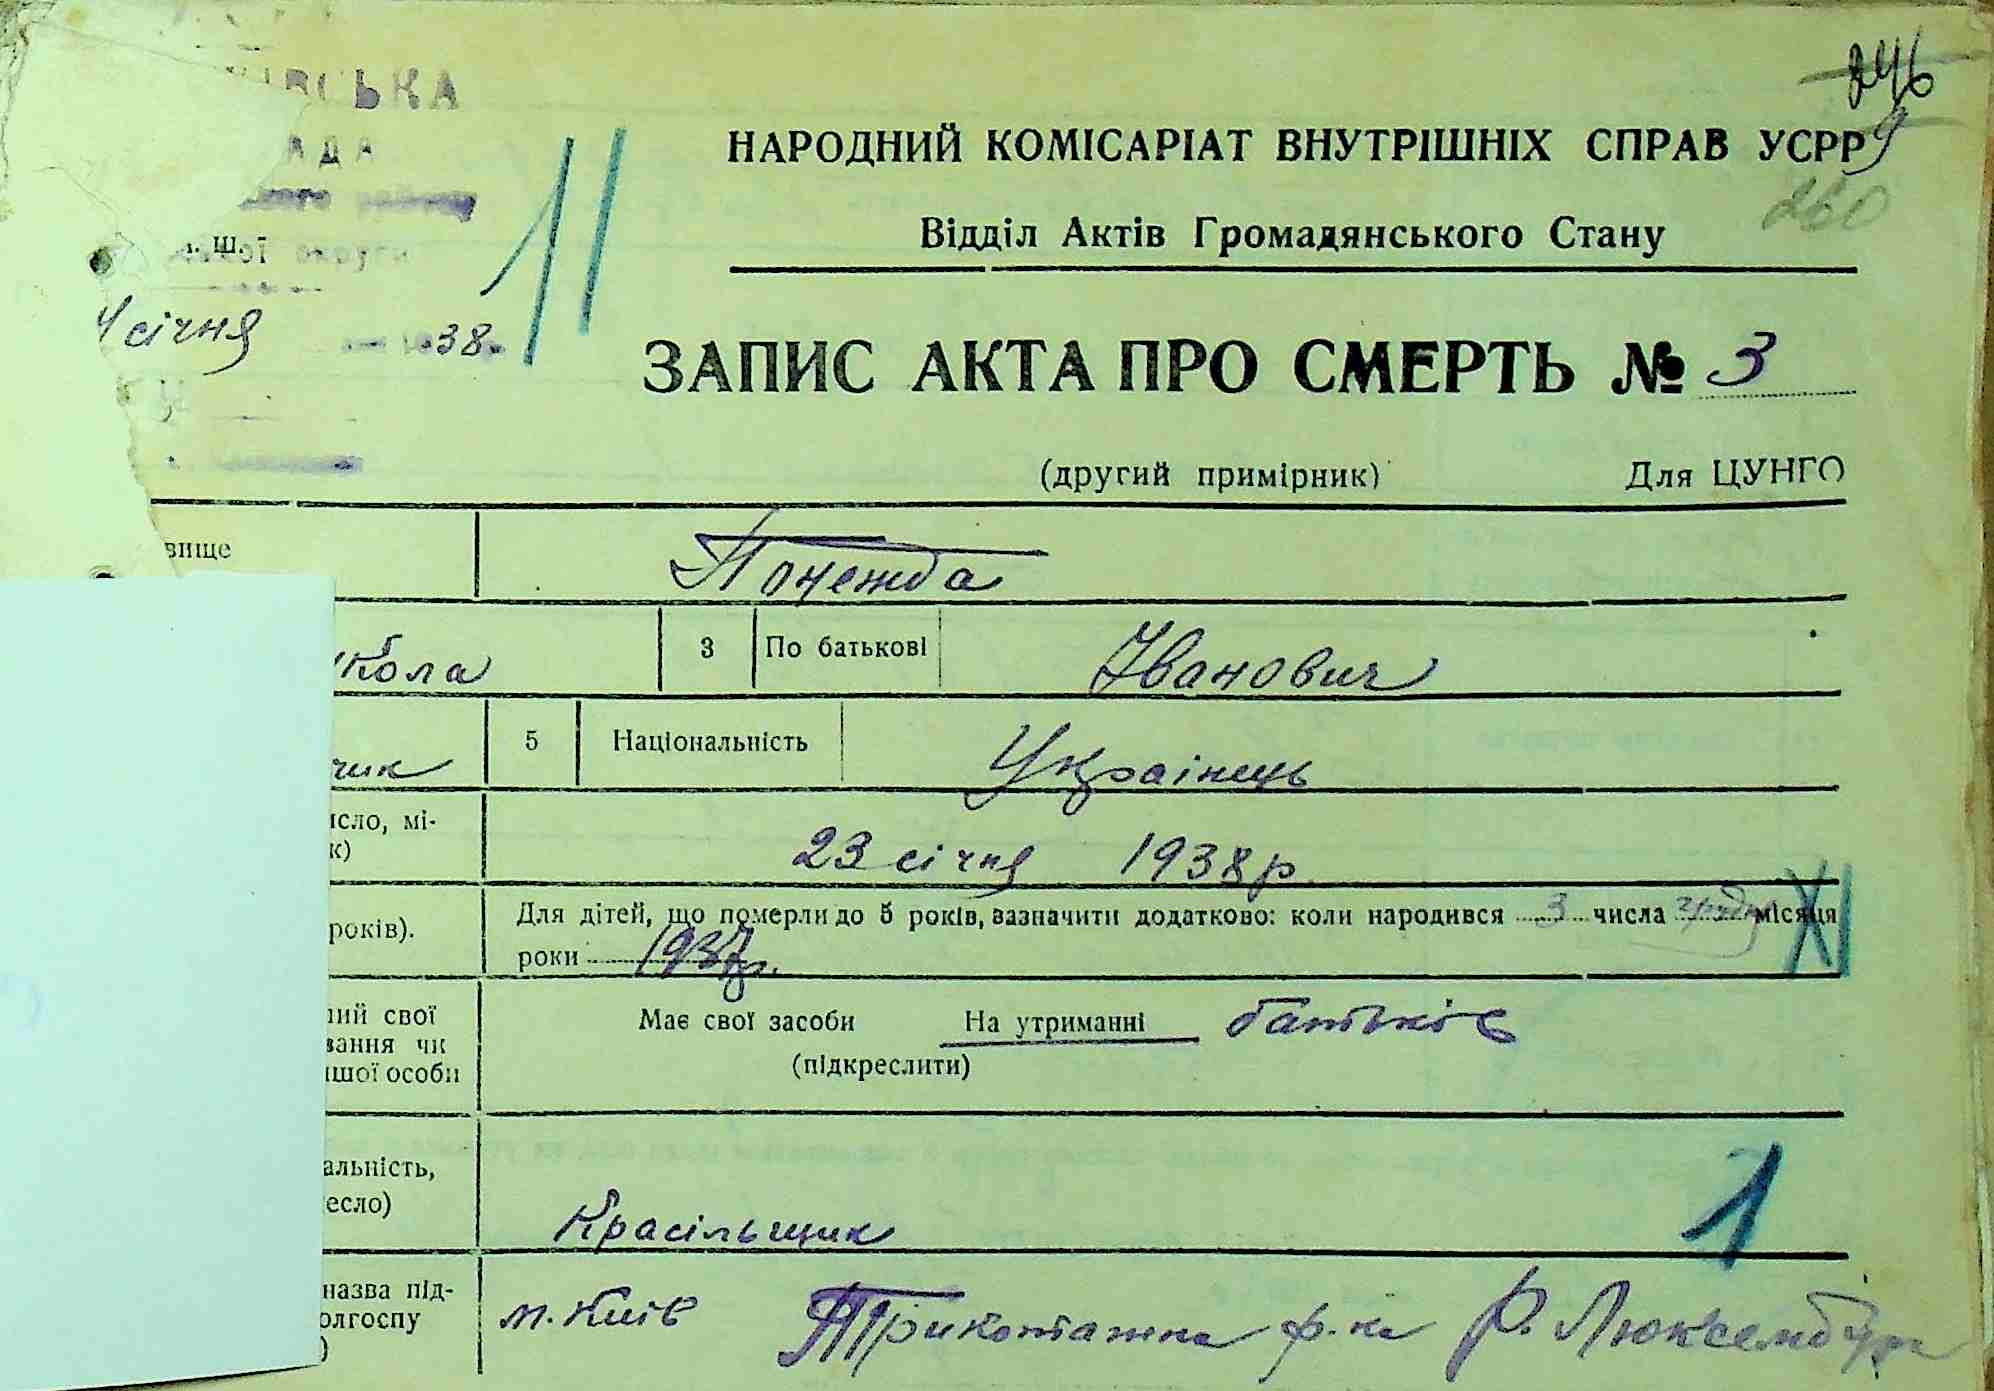 ІВСЬКА
АДА
ского району
ш.
ої округи
4 січня 1938 р.
246
9
260
11
НАРОДНИЙ КОМІСАРІАТ ВНУТРІШНІХ СПРАВ УСРР
Відділ Актів Громадянського Стану
ЗАПИС АКТА ПРО СМЕРТЬ № 3
(другий примірник) Для ЦУНГО
звище Почежда
кола 3 По батькові Іванович
чик 5 Національність Українець
исло, мі-
к) 23 січня 1938 р.
років). Для дітей, що померли до 5 років, зазначити додатково: коли народився 3 числа грудня місяця
роки 1937 р.
XI
ний свої
вання чи
ншої особи
Має свої засоби На утриманні батьків
(підкреслити)
альність,
есло) Красільщик
1
назва під-
олгоспу
)
м. Київ Трикотажна ф-ка Р. Люксембург